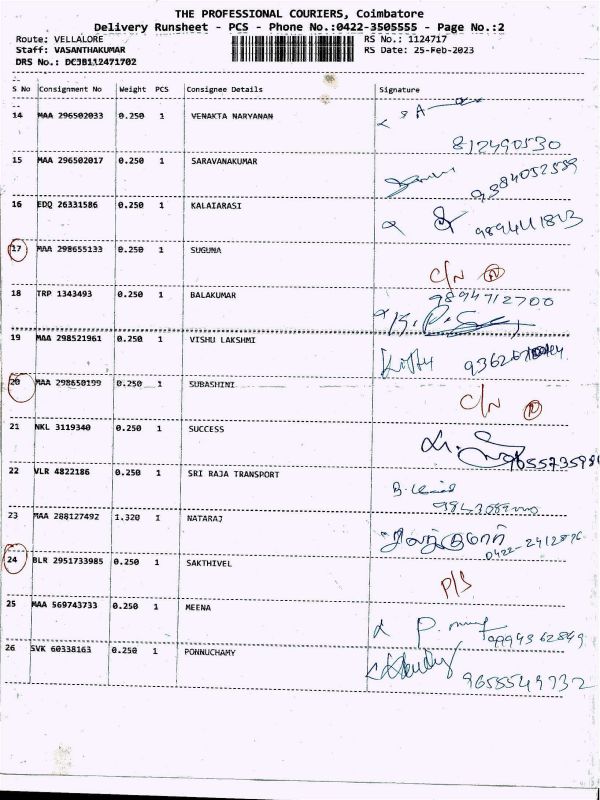 THE PROFESSIONAL COURIERS, Coimbatore
Delivery Runsheet - PCS - Phone No.:0422-3505555 - Page No.:2
Route: VELLALORE RS No.: 1124717
Staff: VASANTHAKUMAR RS Date: 25-Feb-2023
DRS No.: DCJB112471702
S No Consignment No Weight PCS Consignee Details Signature
14 MAA 296502033 0.250 1 VENAKTA NARYANAN
812490530
15 MAA 296502017 0.250 1 SARAVANAKUMAR
9384052559
16 EDQ 26331586 0.250 1 KALAIARASI
17 MAA 298655133 0.250 1 SUGUNA
C/N
18 TRP 1343493 0.250 1 BALAKUMAR
9894712700
19 MAA 298521961 0.250 1 VISHU LAKSHMI
20 MAA 298650199 0.250 1 SUBASHINI
C/N
21 NKL 3119340 0.250 1 SUCCESS
965573598
22 VLR 4822186 0.250 1 SRI RAJA TRANSPORT
23 MAA 288127492 1.320 1 NATARAJ
24 BLR 2951733985 0.250 1 SAKTHIVEL
P/S
25 MAA 569743733 0.250 1 MEENA
9994362849
26 SVK 60338163 0.250 1 PONNUCHAMY
9655549732